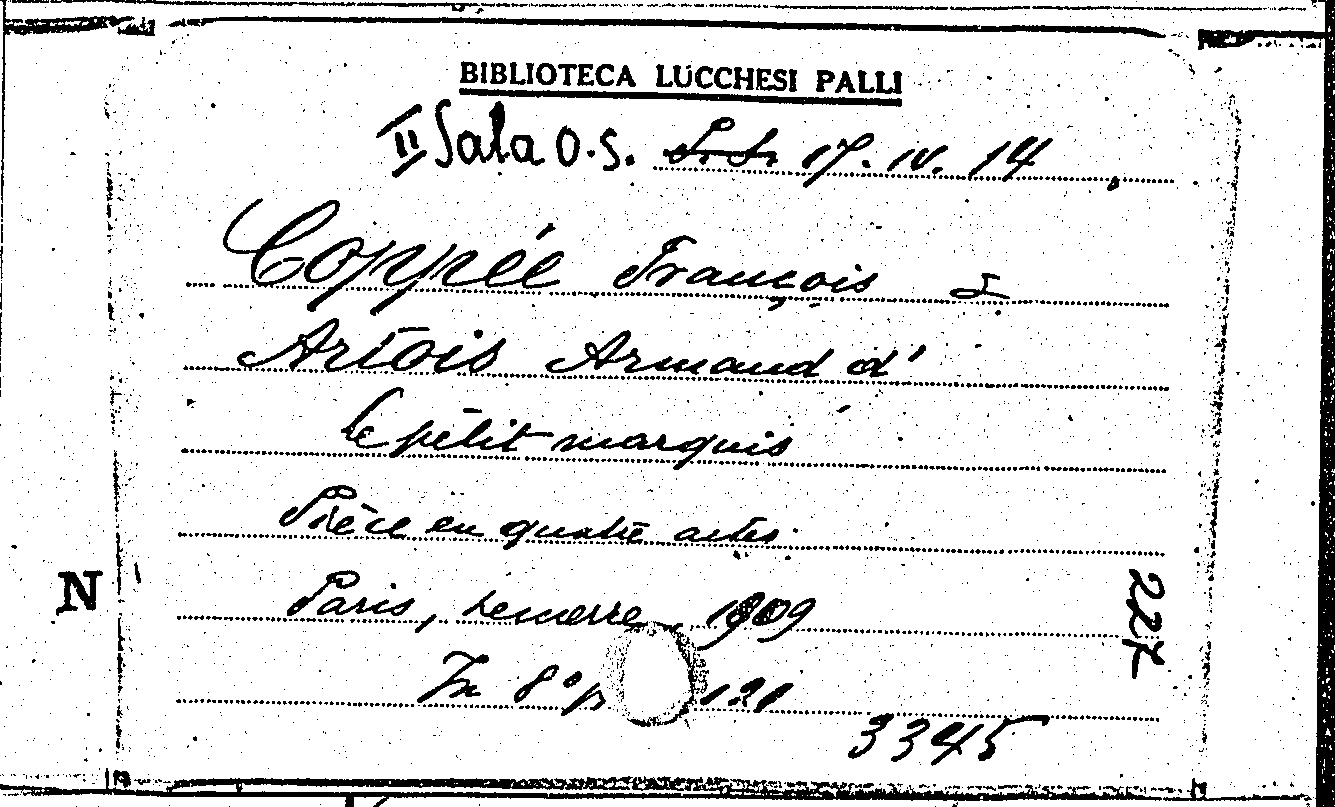 BIBLIOTECA LUCCHESI PALLI
II Sala O.S. S.S. 17. IV. 14
Coppée François &
Artois Armand d'
Le petit marquis
Pièce en quatre actes.
Paris, Lemerre, 1909
N
227
In 8° p. 121
3345